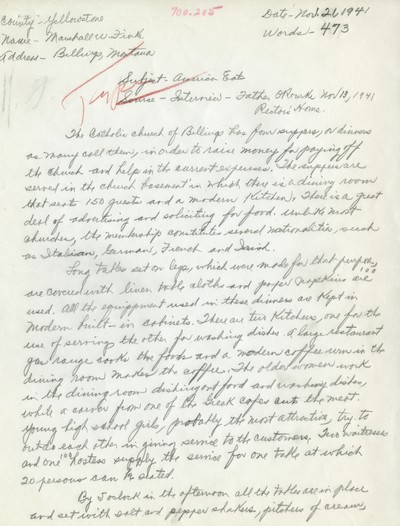 County - Yellowstone
700.205
Date - Nov. 21, 1941
Name - Marshall W. Fink
Words - 473
Address - Billings, Montana
Subject - America Eats
Source - Interview - Father O'Rourke Nov. 13, 1941
Rectors Home.
The Catholic church of Billings has four suppers, or dinners
as many call them, in order to raise money for paying off
the church and help in the current expenses. The suppers are
served in the church basement in which there is a dining room
that seats 150 guests and a modern kitchen. There is a great
deal of advertising and soliciting for food. Unlike most
churches, the membership constitutes several nationalities, such
as Italian, German, French and Irish.
Long tables set on legs, which were made for that purpose,
are covered with linen table cloths and paper napkins are
used. All the equippment used in these dinners are kept in
modern built-in cabinets. There are two kitchens, one for the
use of serving, the other for washing dishes. A large restaurant
gas range cooks the foods and a modern coffee urn in the
dining room makes the coffee. The older women work
in the dining room dishing out food and washing dishes,
while a carver from one of the Greek cafes cuts the meat.
Young high school girls, probably the most attractive, try to
outdo each other in giving service to the customers. Two waitresses
and one "hostess" supply the service for one table at which
20 persons can be seated.
By 5 o'clock in the afternoon all the tables are in place
and set with salt and pepper shakers, pitchers of cream,